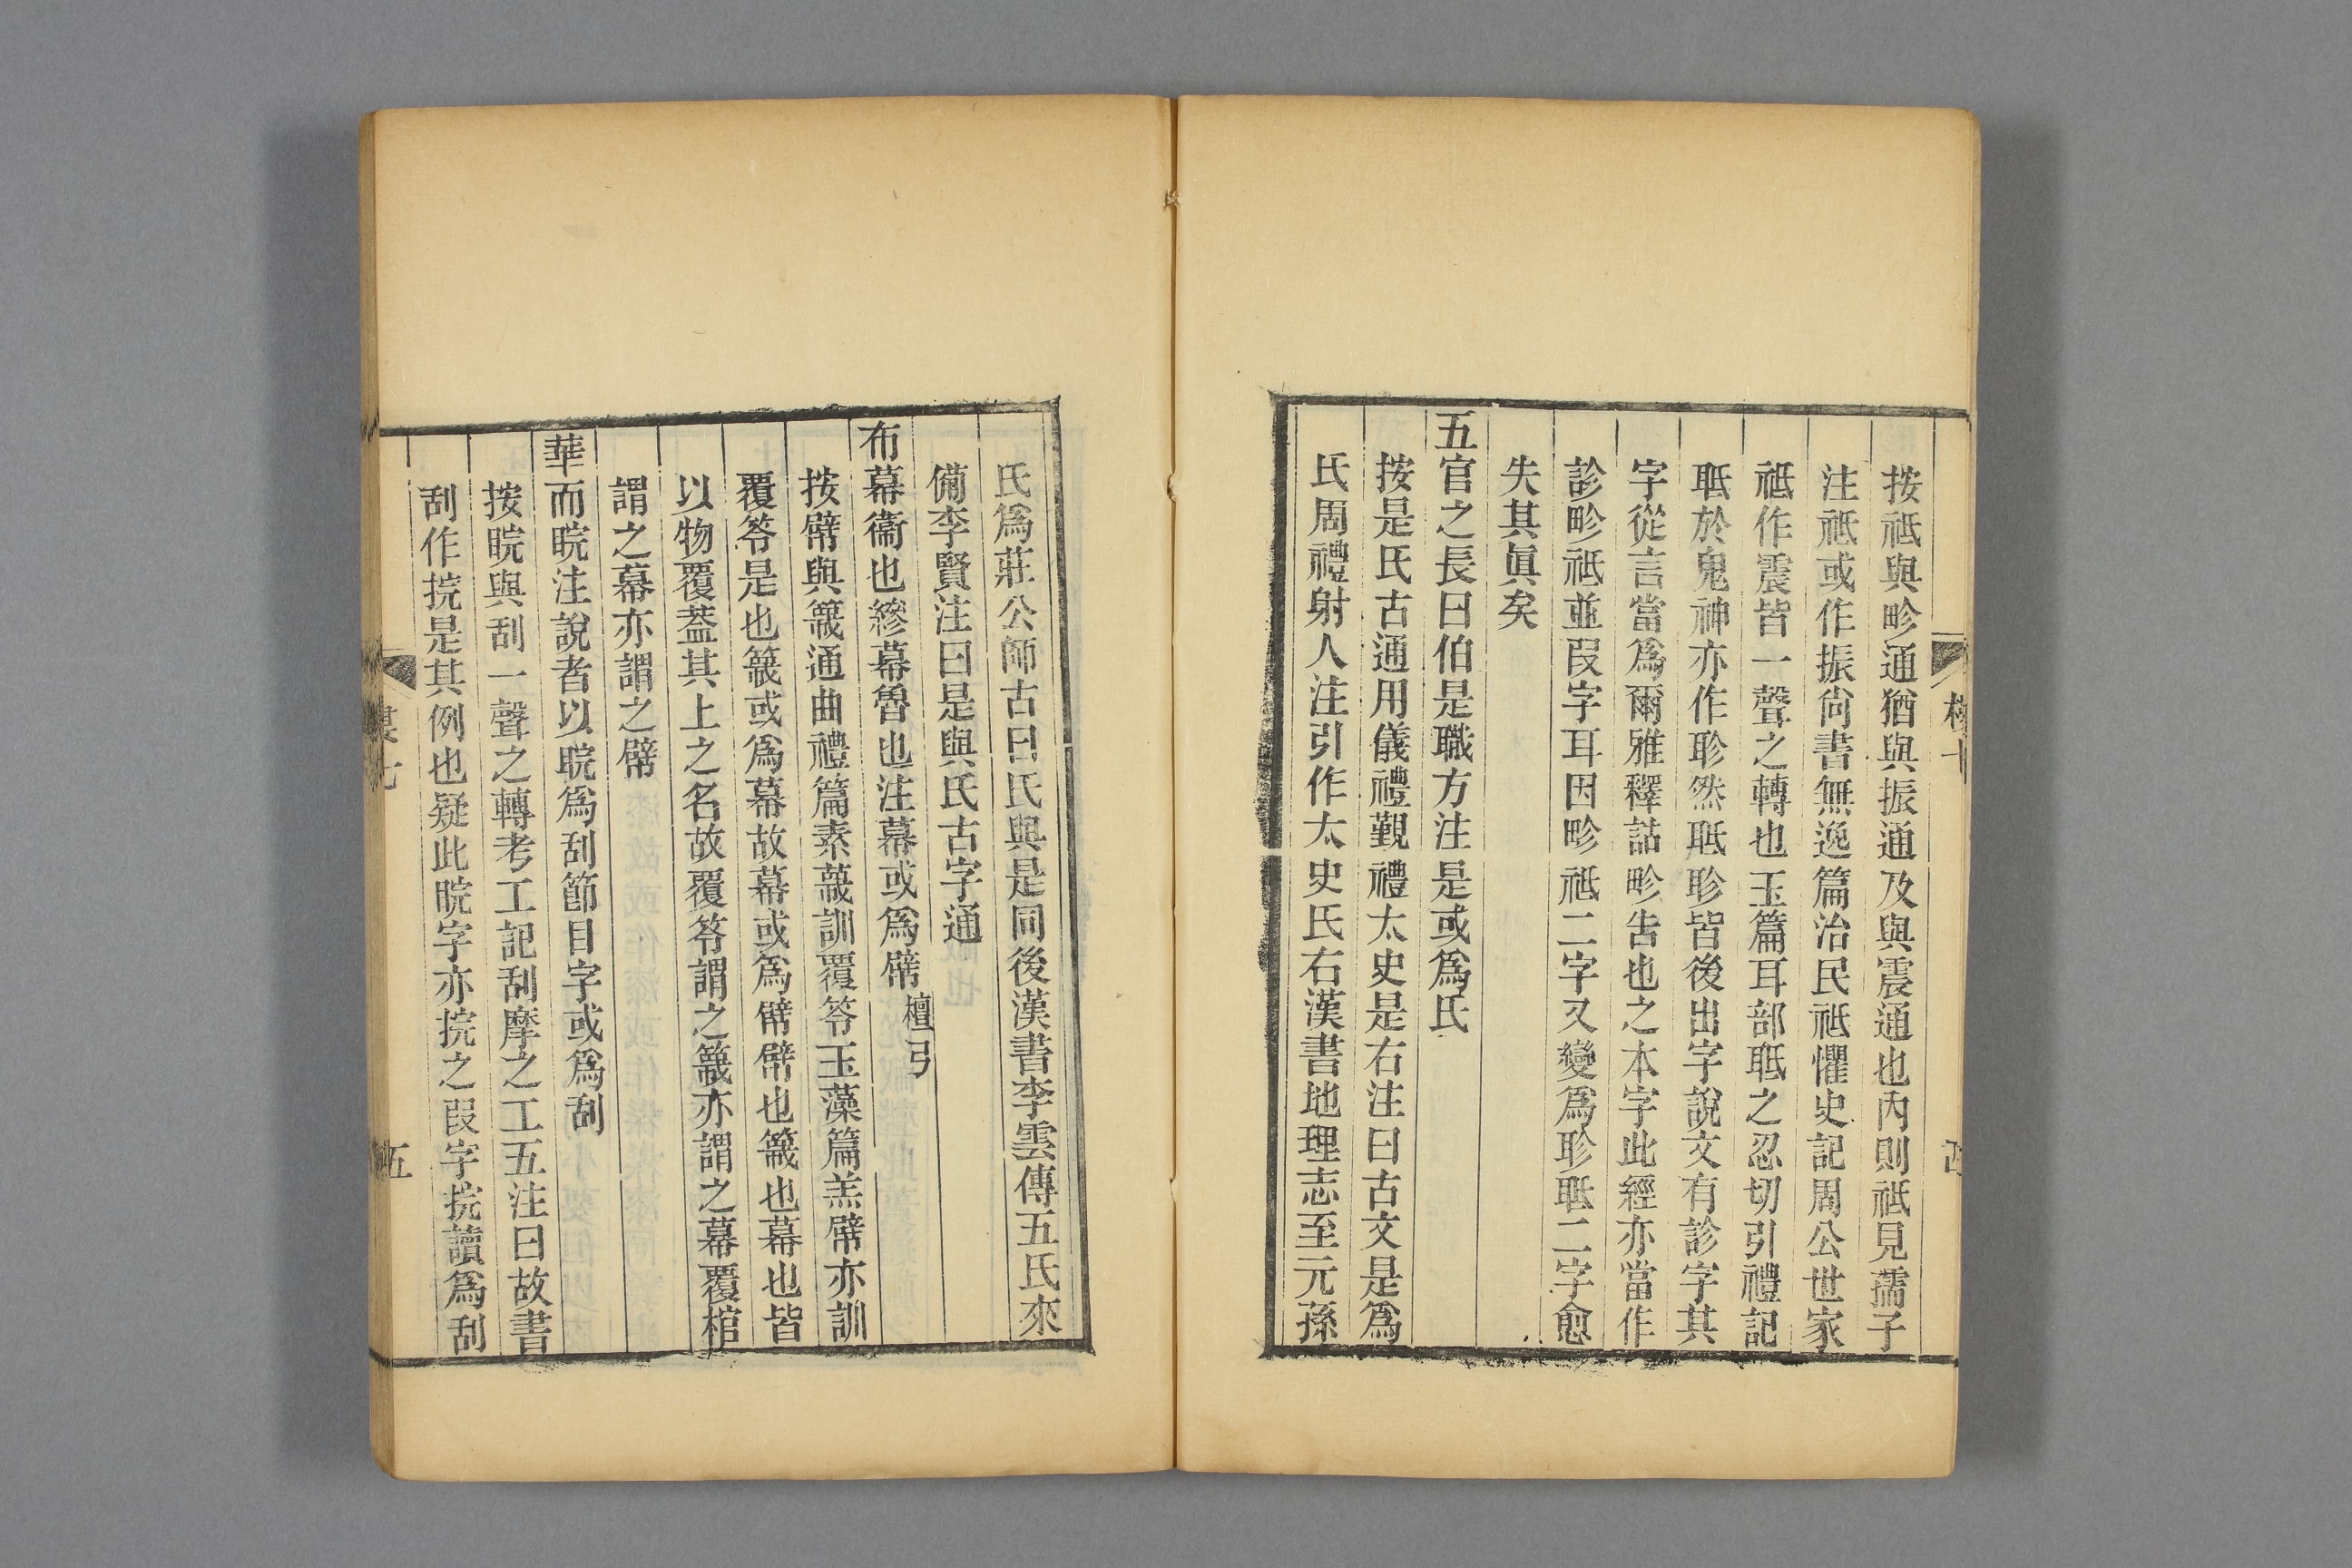 按祗與畛通猶與振通及與震通也內則祗見孺子
注祗或作振尙書無逸篇治民祗懼史記周公世家
祗作震皆一聲之轉也玉篇耳部聀之忍切引禮記
聀於鬼神亦作聄然聀聄皆後出字說文有診字其
字從言當爲爾雅釋詁畛告也之本字此經亦當作
診畛祗並叚字耳因畛祗二字又變爲聄聀二字愈
失其眞矣
五官之長曰伯是職方注是或爲氏
按是氏古通用儀禮覲禮太史是右注曰古文是爲
氏周禮射人注引作太史氏右漢書地理志至元孫
氏爲莊公師古曰氏與是同後漢書李雲傳五氏來
備李賢注曰是與氏古字通
布幕衞也縿幕魯也注幕或爲幦檀弓
按幦與簚通曲禮篇素簚訓覆笭玉藻篇羔幦亦訓
覆笭是也簚或爲幕故幕或爲幦幦也簚也幕也皆
以物覆蓋其上之名故覆笭謂之簚亦謂之幕覆棺
謂之幕亦謂之幦
華而睆注說者以睆爲刮節目字或爲刮
按睆與刮一聲之轉考工記刮摩之工五注曰故書
刮作捖是其例也疑此睆字亦捖之叚字捖讀爲刮
五